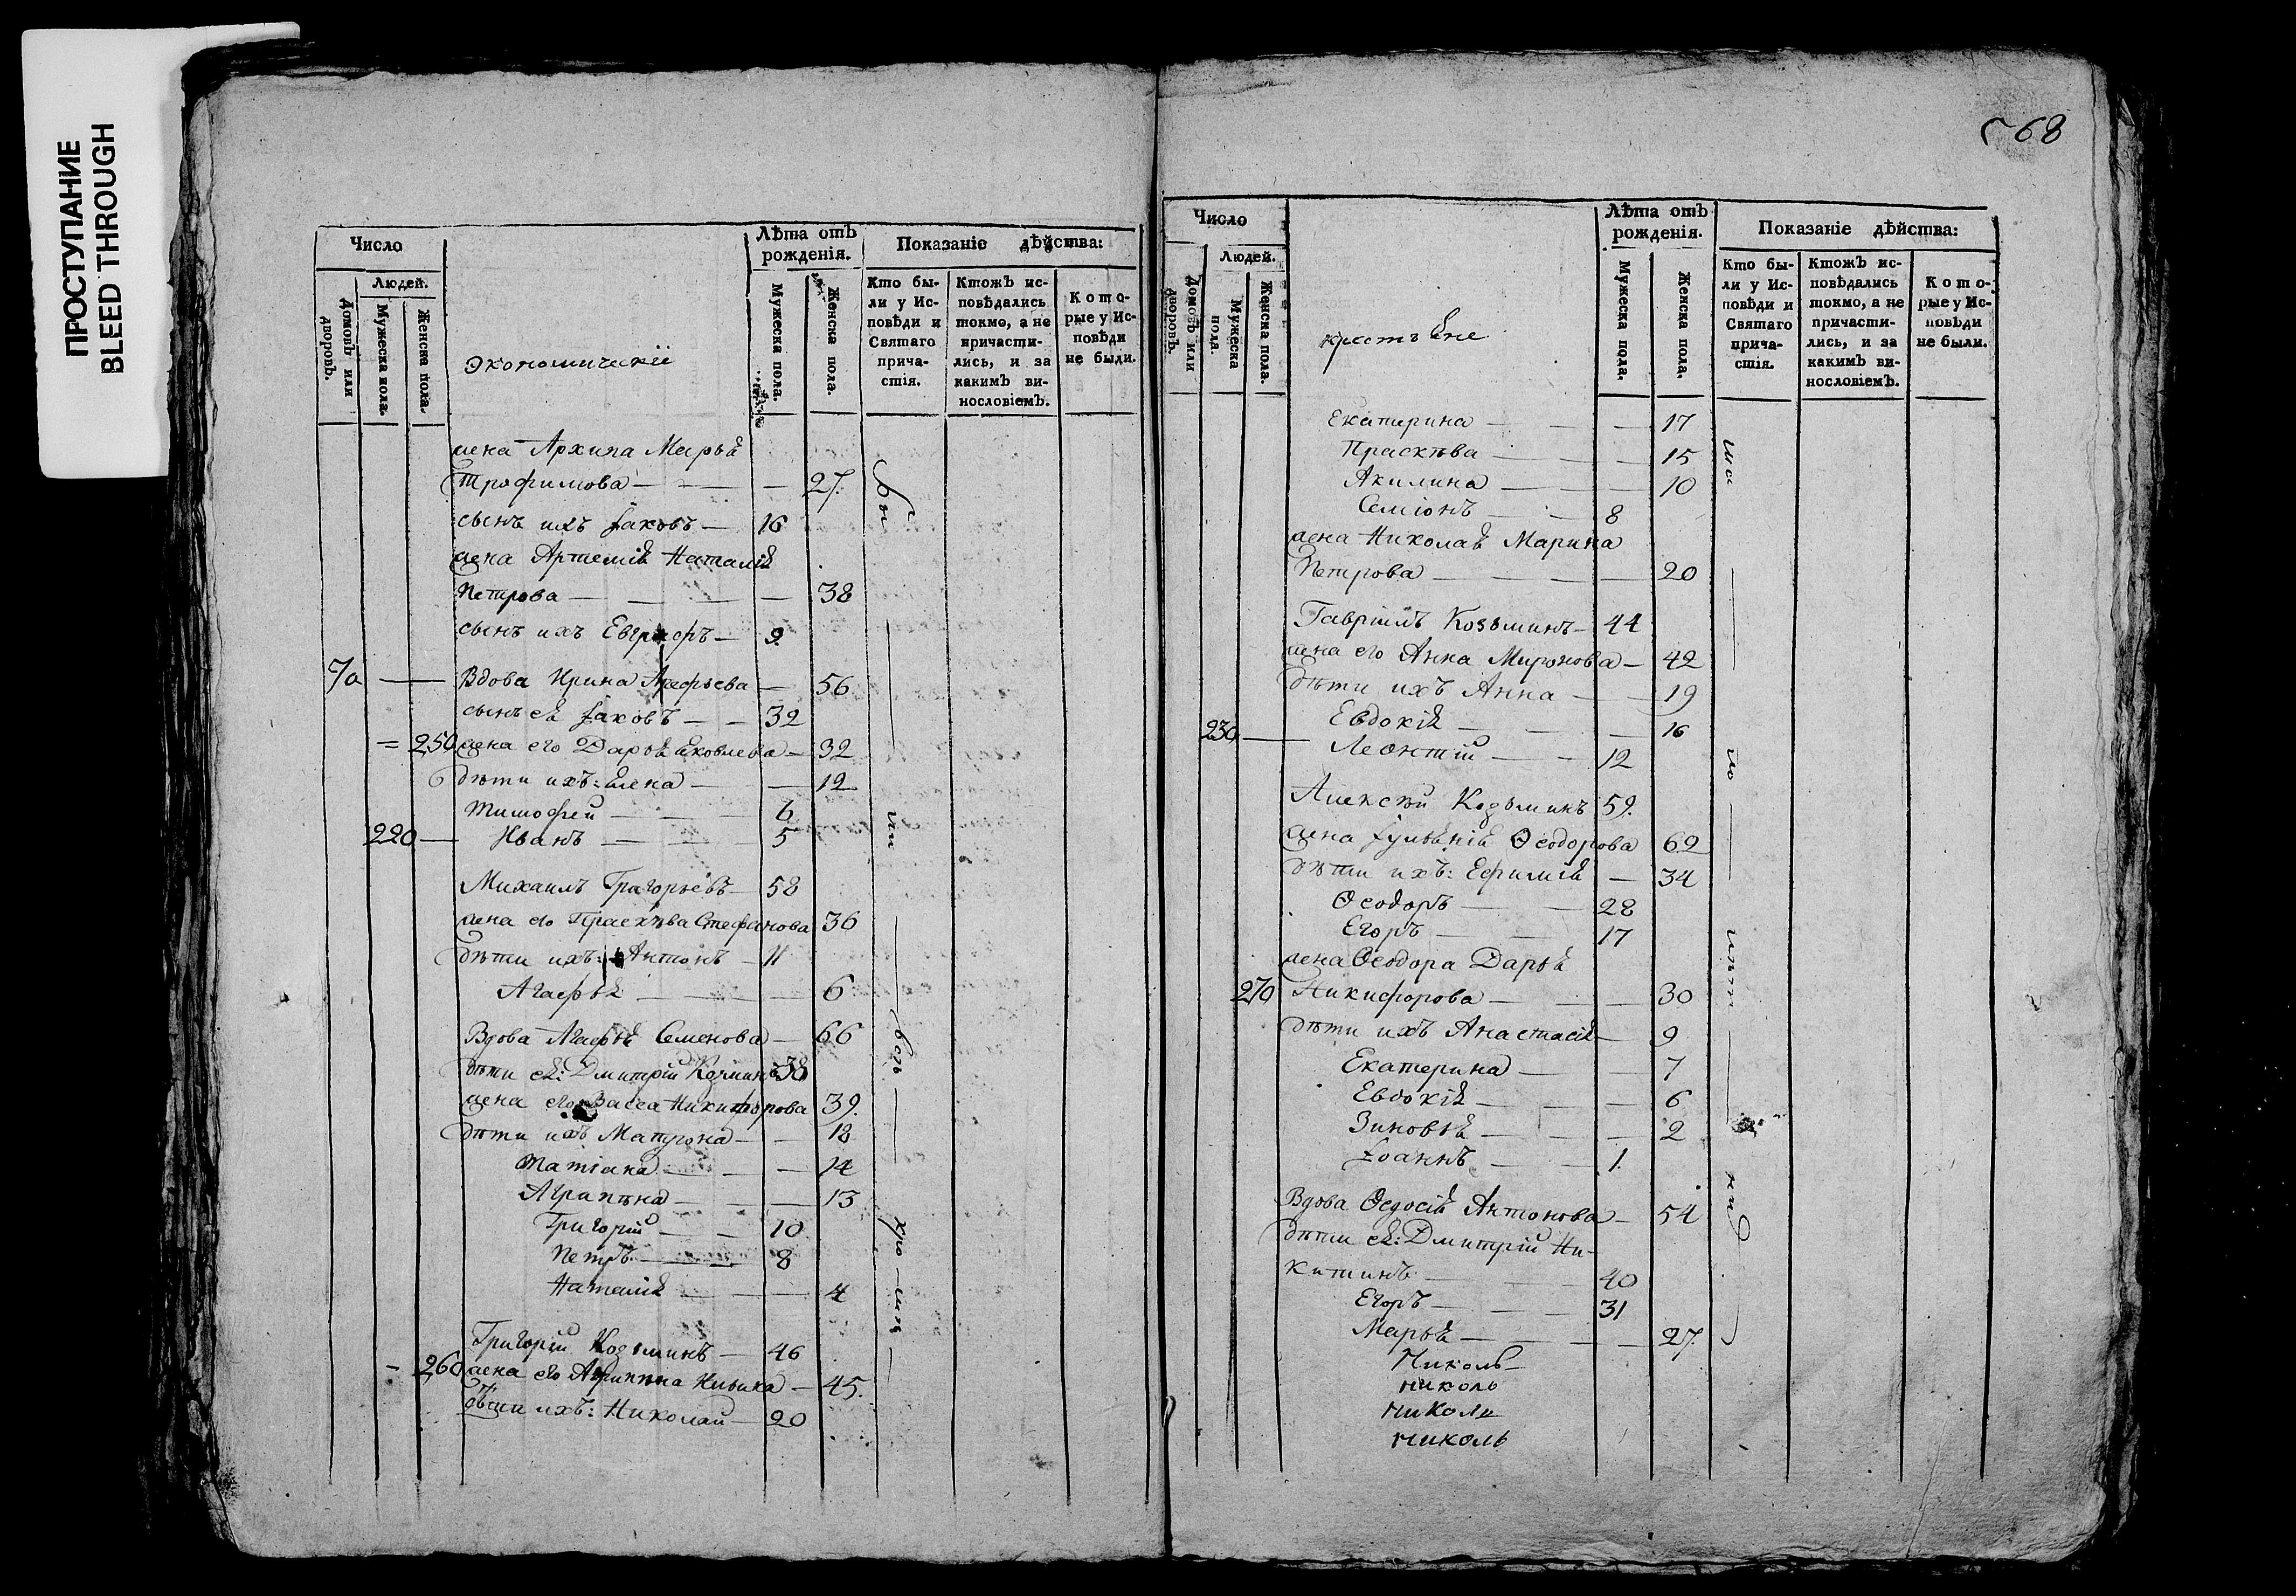 ПРОСТУПАНИЕ
BLEED THROUGH
Число
Людей.
Домовъ или дворовъ.
Мужеска пола.
Женска пола.
Экономическiе
Лѣта отъ рожденiя.
Мужеска пола.
Женска пола.
Показанiе дѣйства:
Кто были у Исповѣди и Святаго причастiя.
Ктожъ исповѣдались токмо, а не причастились, и за какимъ винословiемъ.
Которые у Исповѣди не были.
жена Архипа Марья
Трофимова — 27.
сынъ ихъ Iаковъ — 16
жена Артемiя Наталiя
Петрова — 38
сынъ ихъ Евграфъ — 9
70 — Вдова Ирина Арефьева — 56
сынъ ея Iаковъ — 32
= 250 жена его Дарья Яковлева — 32
дѣти ихъ: Елена — 12
Тимофей — 6
220 — Иванъ — 5
Михаилъ Григорьевъ — 58
жена его Прасковa Стефанова 36
дѣти ихъ: Антонъ — 11
Агафья — 6
Вдова Агафья Семенова — 66
дѣти ея: Дмитрiй Козминъ 38
жена его Васса Никифорова 39.
дѣти ихъ Матрона — 18
Татiана — 14
Аграпѣна — 13
Григорiй — 10
Петръ — 8
Наталiя — 4
Григорiй Козьминъ — 46
= 260 жена его Агрипѣна — 45.
дѣти ихъ: Николай — 20
568
Число
Людей.
Домовъ или дворовъ.
Мужеска пола.
Женска пола.
крестьяне
Лѣта отъ рожденiя.
Мужеска пола.
Женска пола.
Показанiе дѣйства:
Кто были у Исповѣди и Святаго причастiя.
Ктожъ исповѣдались токмо, а не причастились, и за какимъ винословiемъ.
Которые у Исповѣди не были.
Екатерина — 17
Прасковa — 15
Акилина — 10
Семiонъ — 8
жена Николая Марина
Петрова — 20
Гаврiилъ Козьминъ — 44
жена его Анна Миронова — 42
дѣти ихъ Анна — 19
Евдокiя — 16
230 — Леонтiй — 12
Алексѣй Козьминъ 59.
жена Iулiанiя Ѳеодорова 62
дѣти ихъ: Ефимiя — 34
Ѳеодоръ — 28
Егоръ — 17
жена Ѳеодора Дарья
270 Никифорова — 30
дѣти ихъ Анастасiя — 9
Екатерина — 7
Евдокiя — 6
Зиновья — 2
Iоаннъ — 1.
Вдова Ѳедосiя Антонова — 54
дѣти ея: Дмитрiй Ни-
китинъ — 40
Егоръ — 31
Марья — 27.
Николь
николь
николи
николь